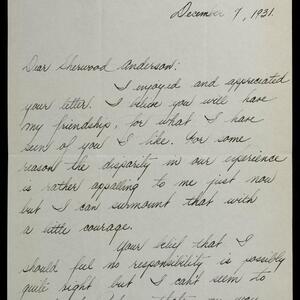 December 9, 1931.
Dear Sherwood Anderson:
I enjoyed and appreciated
your letter. I believe you will have
my friendship, for what I have
seen of you I like. For some
reason the disparity in our experience
is rather appalling to me just now
but I can surmount that with
a little courage.
Your belief that I
should feel no responsibility is possibly
quite right but I can't seem to